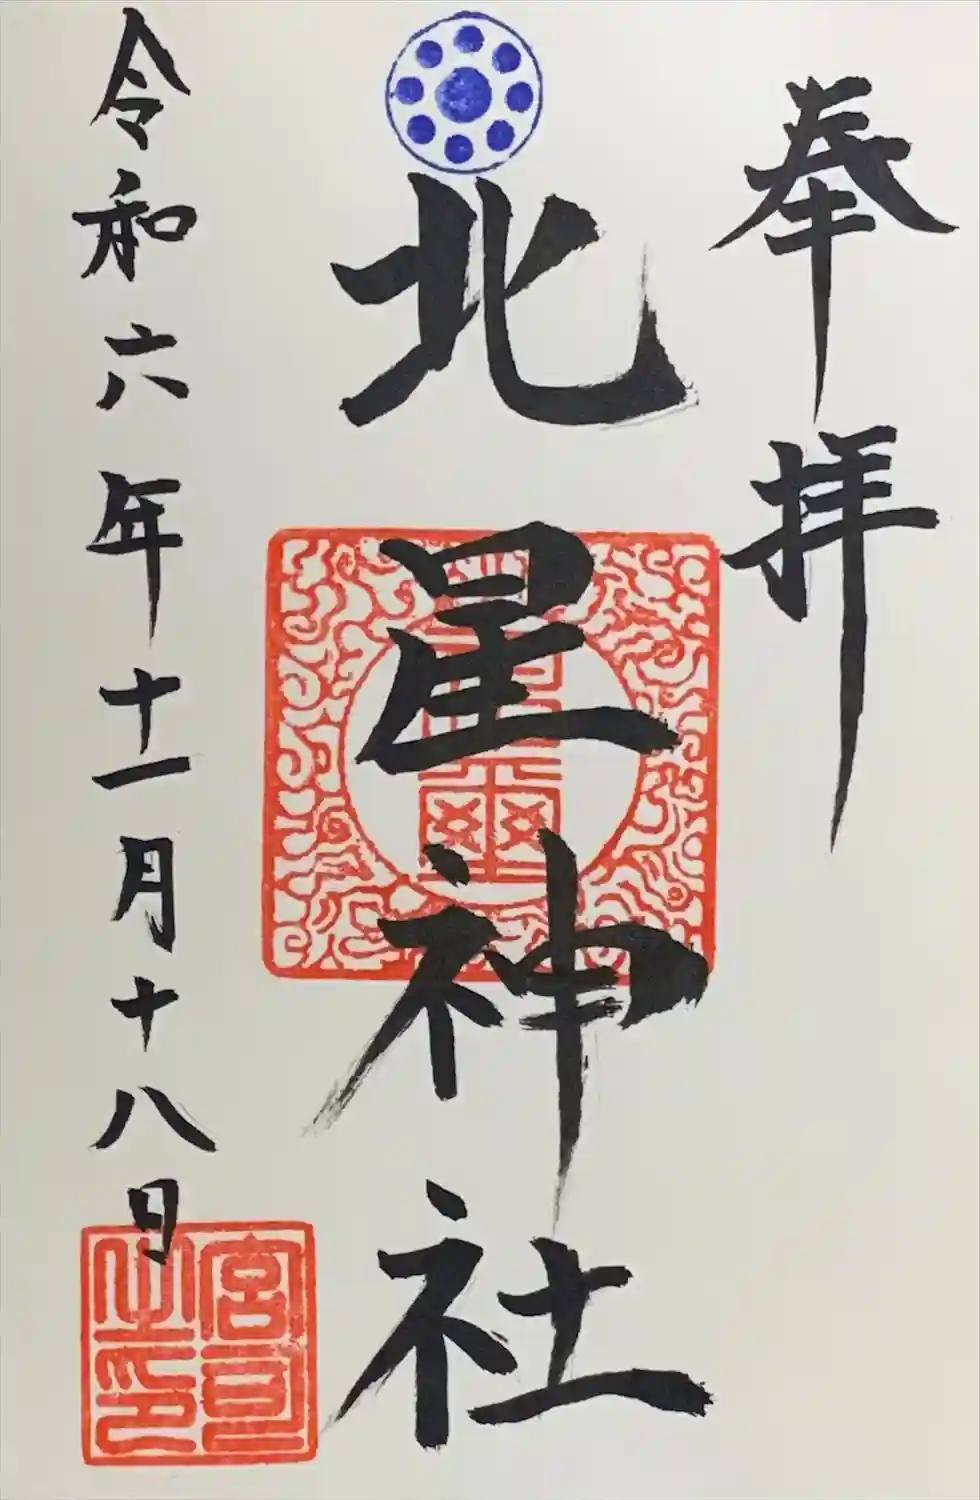 奉拝
北星神社
令和六年十一月十八日
宮司之印